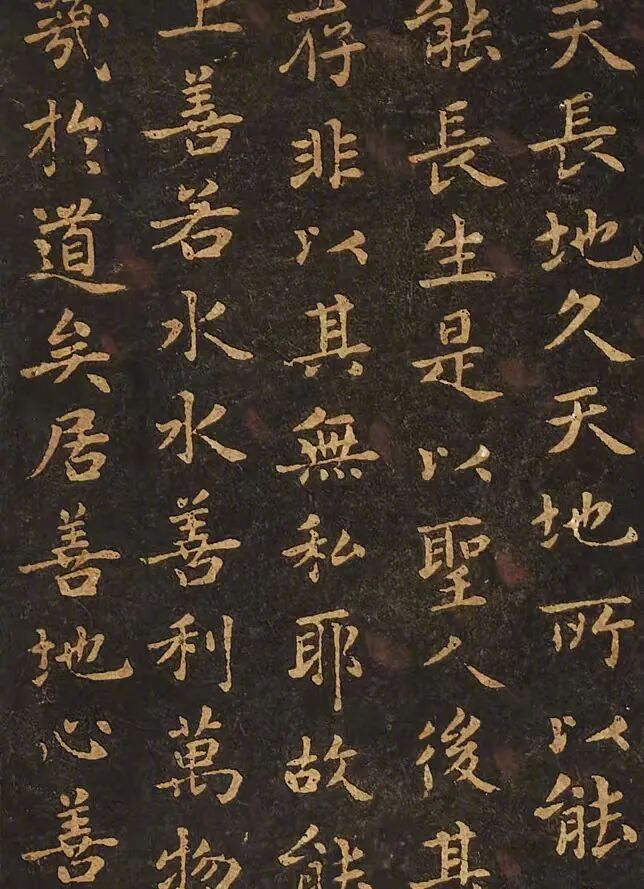 天長地久天地所以能
能長生是以聖人後其
存非以其無私耶故能
上善若水水善利萬物
幾於道矣居善地心善